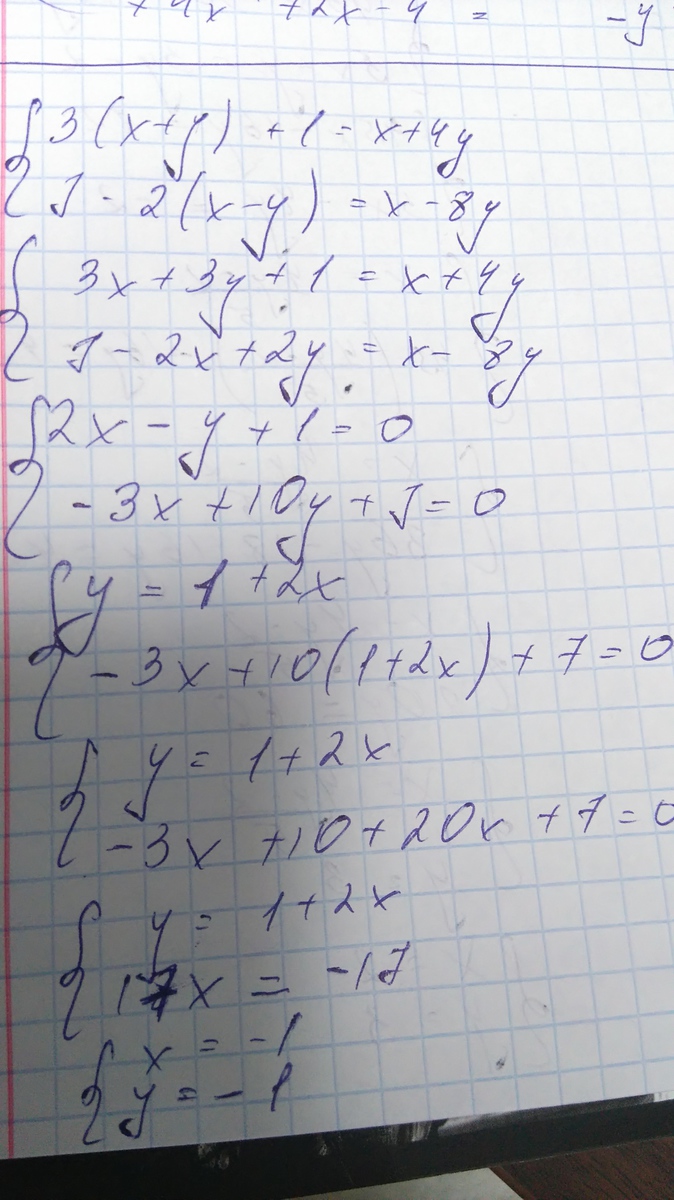 +4x +2x-4 = -y
{ 3(x+y) +1 = x+4y
7 - 2(x-y) = x - 8y
{ 3x + 3y + 1 = x + 4y
7 - 2x + 2y = x - 8y
{ 2x - y + 1 = 0
-3x + 10y + 7 = 0
{ y = 1 + 2x
-3x + 10(1+2x) + 7 = 0
{ y = 1 + 2x
-3x + 10 + 20x + 7 = 0
{ y = 1 + 2x
17x = -17
{ x = -1
y = -1